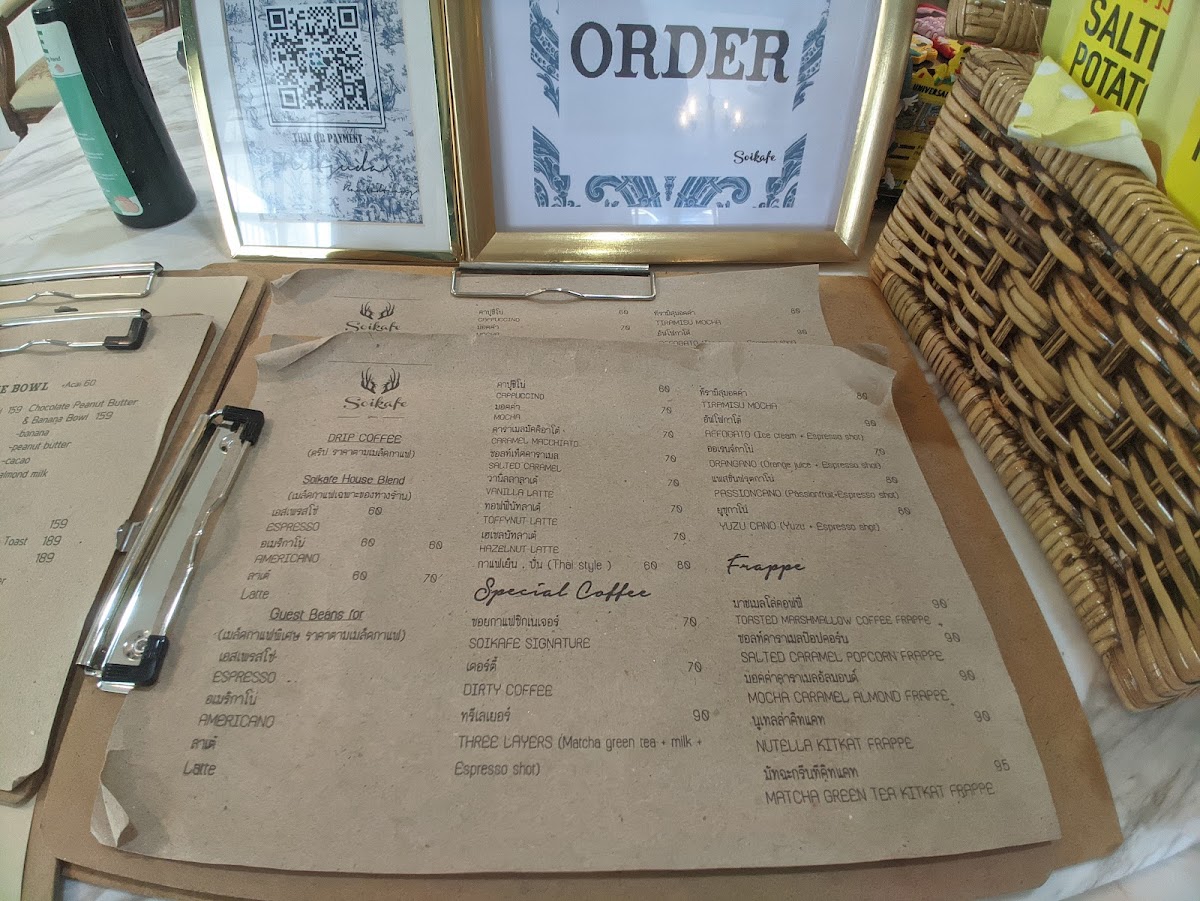 THAI QR PAYMENT
ORDER
Soikafe
SALTE
POTAT
UNIVERSA
E BOWL -Acai 60
159 Chocolate Peanut Butter
& Banana Bowl 159
-banana
-peanut butter
-cacao
almond milk
159
Toast 189
189
Soikafe
คาปูชิโน่ 60
CAPPUCCINO
มอคค่า 70
MOCHA
ทีรามิสุมอคค่า 80
TIRAMISU MOCHA
อัฟโฟกาโต้ 90
Soikafe
DRIP COFFEE
(ดริป ราคาตามเมล็ดกาแฟ)
Soikafe House Blend
(เมล็ดกาแฟเฉพาะของทางร้าน)
เอสเพรสโซ่ 60
ESPRESSO
อเมริกาโน่ 60 60
AMERICANO
ลาเต้ 60 70
Latte
Guest Beans for
(เมล็ดกาแฟพิเศษ ราคาตามเมล็ดกาแฟ)
เอสเพรสโซ่
ESPRESSO
อเมริกาโน่
AMERICANO
ลาเต้
Latte
คาปูชิโน่ 60
CAPPUCCINO
มอคค่า 70
MOCHA
คาราเมลมัคคิอาโต้ 70
CARAMEL MACCHIATO
ซอลท์เท็ดคาราเมล 70
SALTED CARAMEL
วานิลลาลาเต้ 70
VANILLA LATTE
ทอฟฟี่นัทลาเต้ 70
TOFFYNUT LATTE
เฮเซลนัทลาเต้ 70
HAZELNUT LATTE
กาแฟเย็น , ปั่น (Thai style ) 60 80
Special Coffee
ซอยกาแฟซิกเนเจอร์ 70
SOIKAFE SIGNATURE
เดอร์ตี้ 70
DIRTY COFFEE
ทรีเลเยอร์ 90
THREE LAYERS (Matcha green tea + milk +
Espresso shot)
ทีรามิสุมอคค่า 80
TIRAMISU MOCHA
อัฟโฟกาโต้ 90
AFFOGATO (Ice cream + Espresso shot)
ออเรนจิกาโน่ 70
ORANGANO (Orange juice + Espresso shot)
แพสชั่นฟรุตกาโน่ 80
PASSIONCANO (Passionfruit+Espresso shot)
ยูซุกาโน่ 80
YUZU CANO (Yuzu + Espresso shot)
Frappe
มาชเมลโล่คอฟฟี่ 90
TOASTED MARSHMALLOW COFFEE FRAPPE
ซอลท์คาราเมลป๊อปคอร์น 90
SALTED CARAMEL POPCORN FRAPPE
มอคค่าคาราเมลอัลมอนด์ 90
MOCHA CARAMEL ALMOND FRAPPE
นูเทลล่าคิทแคท 90
NUTELLA KITKAT FRAPPE
มัทฉะกรีนทีคิทแคท 95
MATCHA GREEN TEA KITKAT FRAPPE